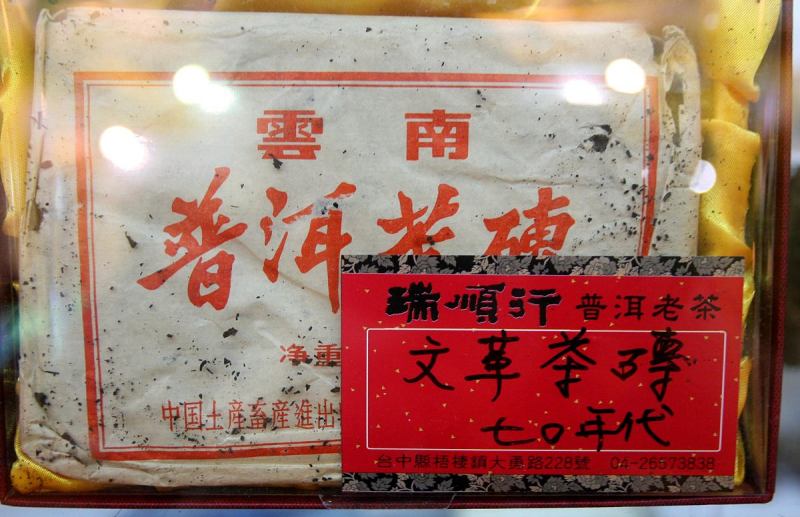 雲南
普洱茶磚
净重
中国土產畜產進出
瑞順行 普洱老茶
文革茶磚
七〇年代
台中縣梧棲鎮大勇路228號 04-26573838